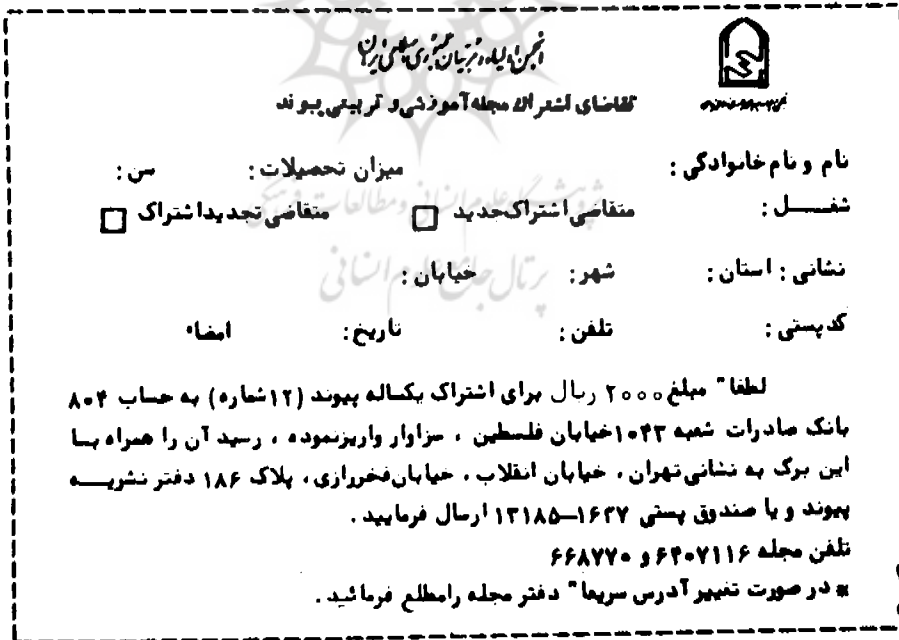 انجمن اولیاء و مربیان جمهوری اسلامی ایران
تقاضای اشتراک مجله آموزشی و تربیتی پیوند
نام و نام خانوادگی : میزان تحصیلات : سن :
شغــــل : متقاضی اشتراک جدید □ متقاضی تجدید اشتراک □
پژوهشگاه علوم انسانی و مطالعات فرهنگی
نشانی : استان : شهر : خیابان :
پرتال جامع علوم انسانی
کدپستی : تلفن : تاریخ : امضاء
لطفا" مبلغ ۲۰۰۰ ریال برای اشتراک یکساله پیوند (۱۲شماره) به حساب ۸۰۴
بانک صادرات شعبه ۱۰۴۳خیابان فلسطین ، سزاوار واریزنموده ، رسید آن را همراه بــا
این برگ به نشانی تهران ، خیابان انقلاب ، خیابان فخررازی ، پلاک ۱۸۶ دفتر نشریـــه
پیوند و یا صندوق پستی ۱۶۳۷–۱۳۱۸۵ ارسال فرمایید .
تلفن مجله ۶۴۰۷۱۱۶ و ۶۶۸۷۷۰
* در صورت تغییر آدرس سریعا" دفتر مجله رامطلع فرمائید .